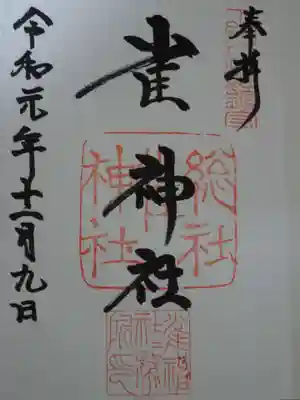 奉拝
雀神社
総社
神社
令和元年十一月九日